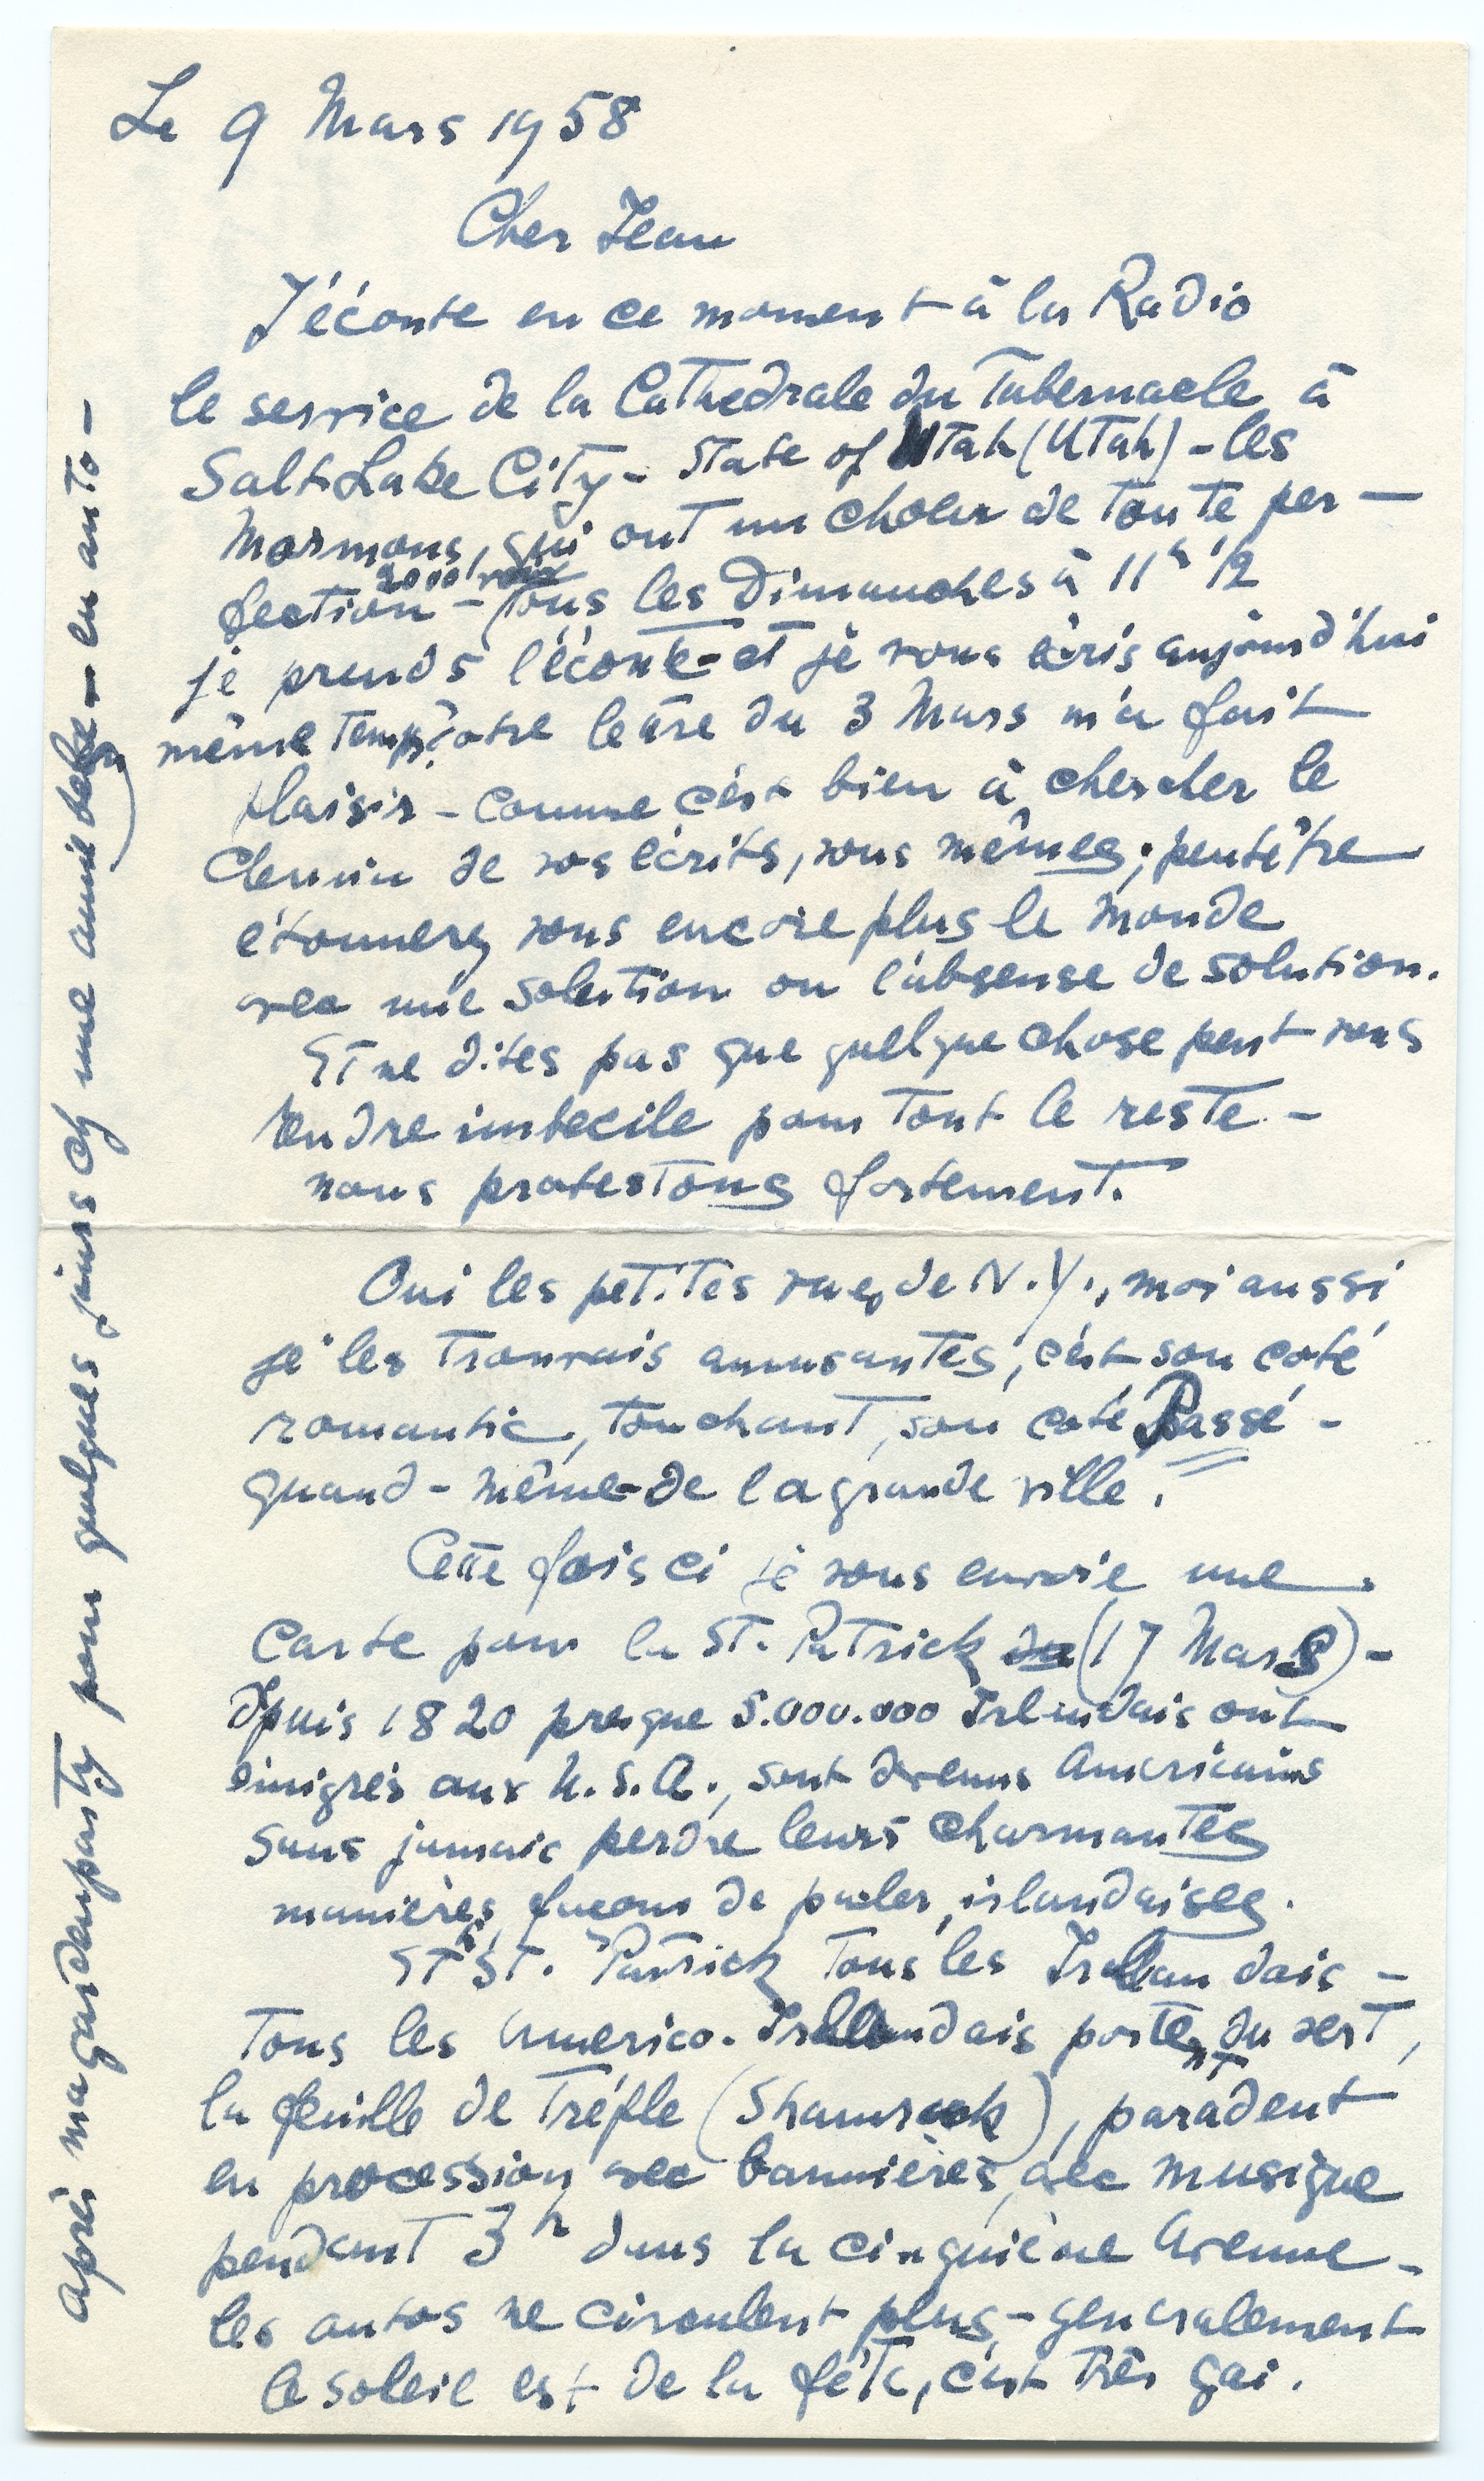 Le 9 Mars 1958
Cher Jean
J'écoute en ce moment à la Radio
le service de la Cathedrale du Tabernacle à
Salt Lake City - State of Utah (Utah) - les
Mormons, qui ont un choeur de toute per-
fection - Tous les Dimanches à 11h 1/2
je prends l'écoute - et je vous écris aujourd'hui
même temps. Votre lettre du 3 Mars m'a fait
plaisir - comme c'est bien à chercher le
Chemin de vos écrits, vous mêmes; peutêtre
étonnerez vous encore plus le monde
avec une solution ou l'absense de solution.
Et ne dites pas que quelque chose peut vous
rendre imbecile pour tout le reste -
nous protestons fortement.
Oui les petites rues de N.Y., moi aussi
je les trouvais amusantes, c'est son coté
romantic, touchant, son coté Passé -
quand-même-de la grande ville.
Cette fois ci je vous envoie une
carte pour la St. Patrick (17 Mars) -
dpuis 1820 presque 5.000.000 Irlandais ont
émigrés aux U.S.A., sont devenus Americains
sans jamais perdre leurs charmantes
manières, facons de parler, irlandaises.
St. Patrick tous les Irlandais -
Tous les Americo-Irlandais portent du vert,
la feuille de Tréfle (Shamrock), paradent
en procession avec bannières, avec musique
pendant 3h dans la cinquième Avenue -
les autos ne circulent plus, - generalement
le soleil est de la fête, c'est très gai.
après ma gardenparty pour quelques jours chez une amie - en auto -